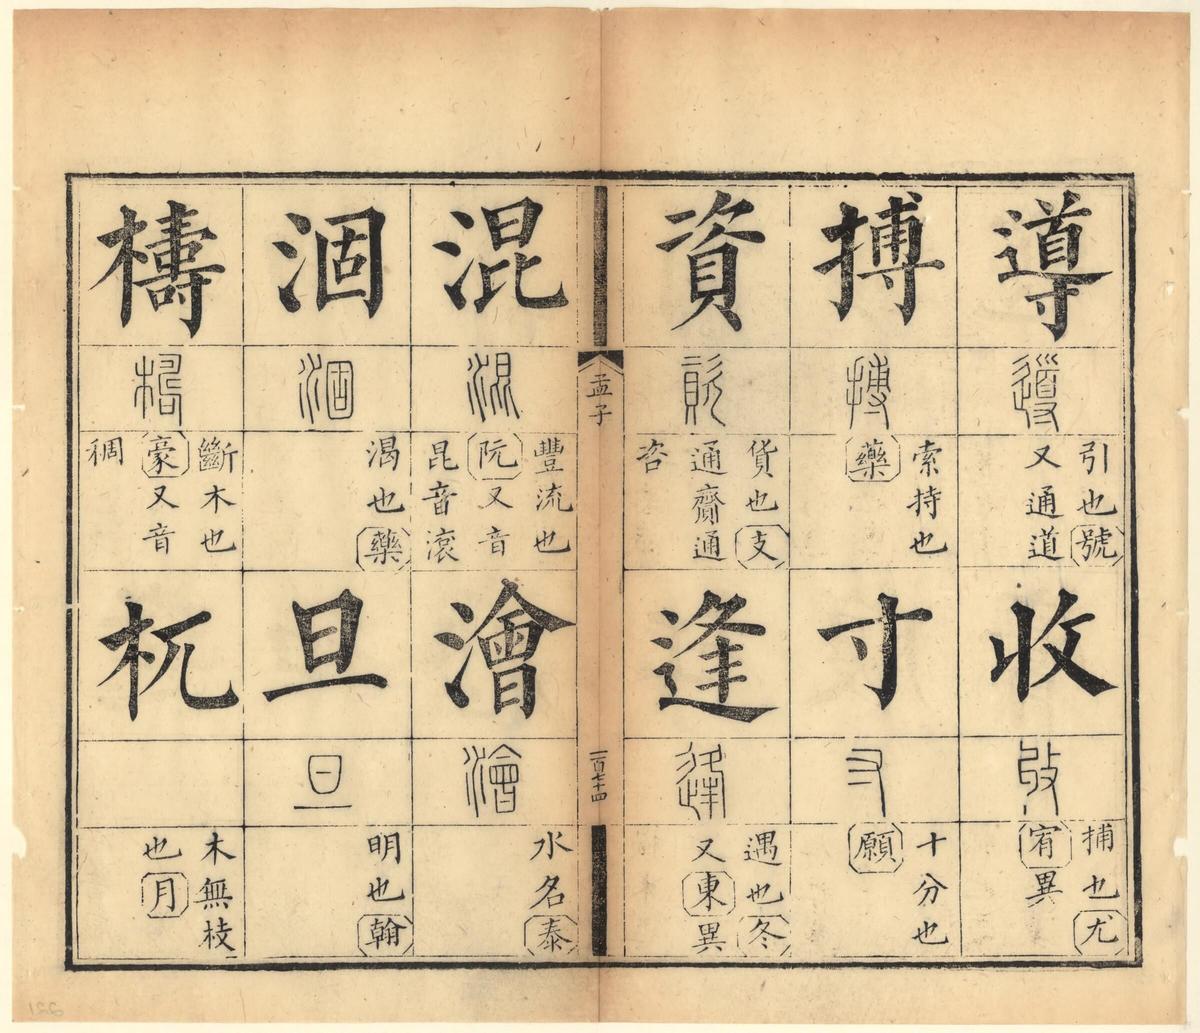 導
引也號
又通道
收
捕也尤
宥異
搏
索持也
藥
寸
十分也
願
資
貨也支
通齎通
咨
逢
遇也冬
又東異
孟子
一百七十四
混
豐流也
阮又音
昆音滾
澮
水名泰
涸
渴也藥
旦
明也翰
檮
斷木也
豪又音
稠
杌
木無枝
也月